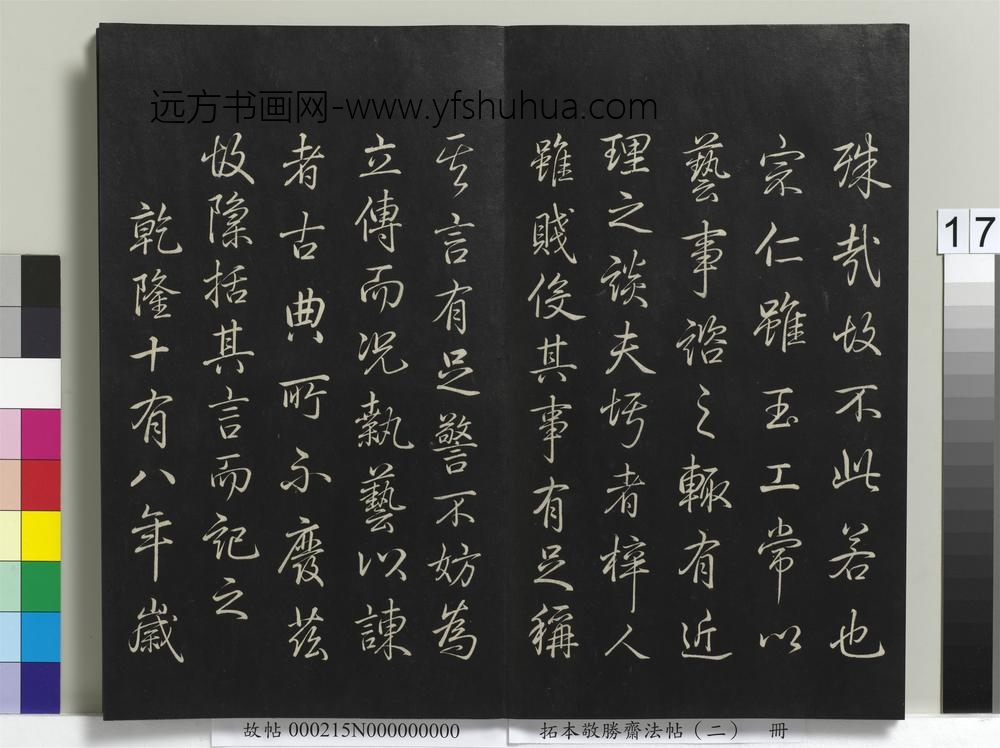 远方书画网-www.yfshuhua.com
殊哉故不此若也
宗仁雖玉工常以
藝事諮之輒有近
理之談夫圬者梓人
雖賤伎其事有足稱
其言有足警不妨為
立傳而况執藝以諫
者古典所不廢茲
故檃括其言而記之
乾隆十有八年歲
17
故帖000215N000000000
拓本敬勝齋法帖（二） 冊